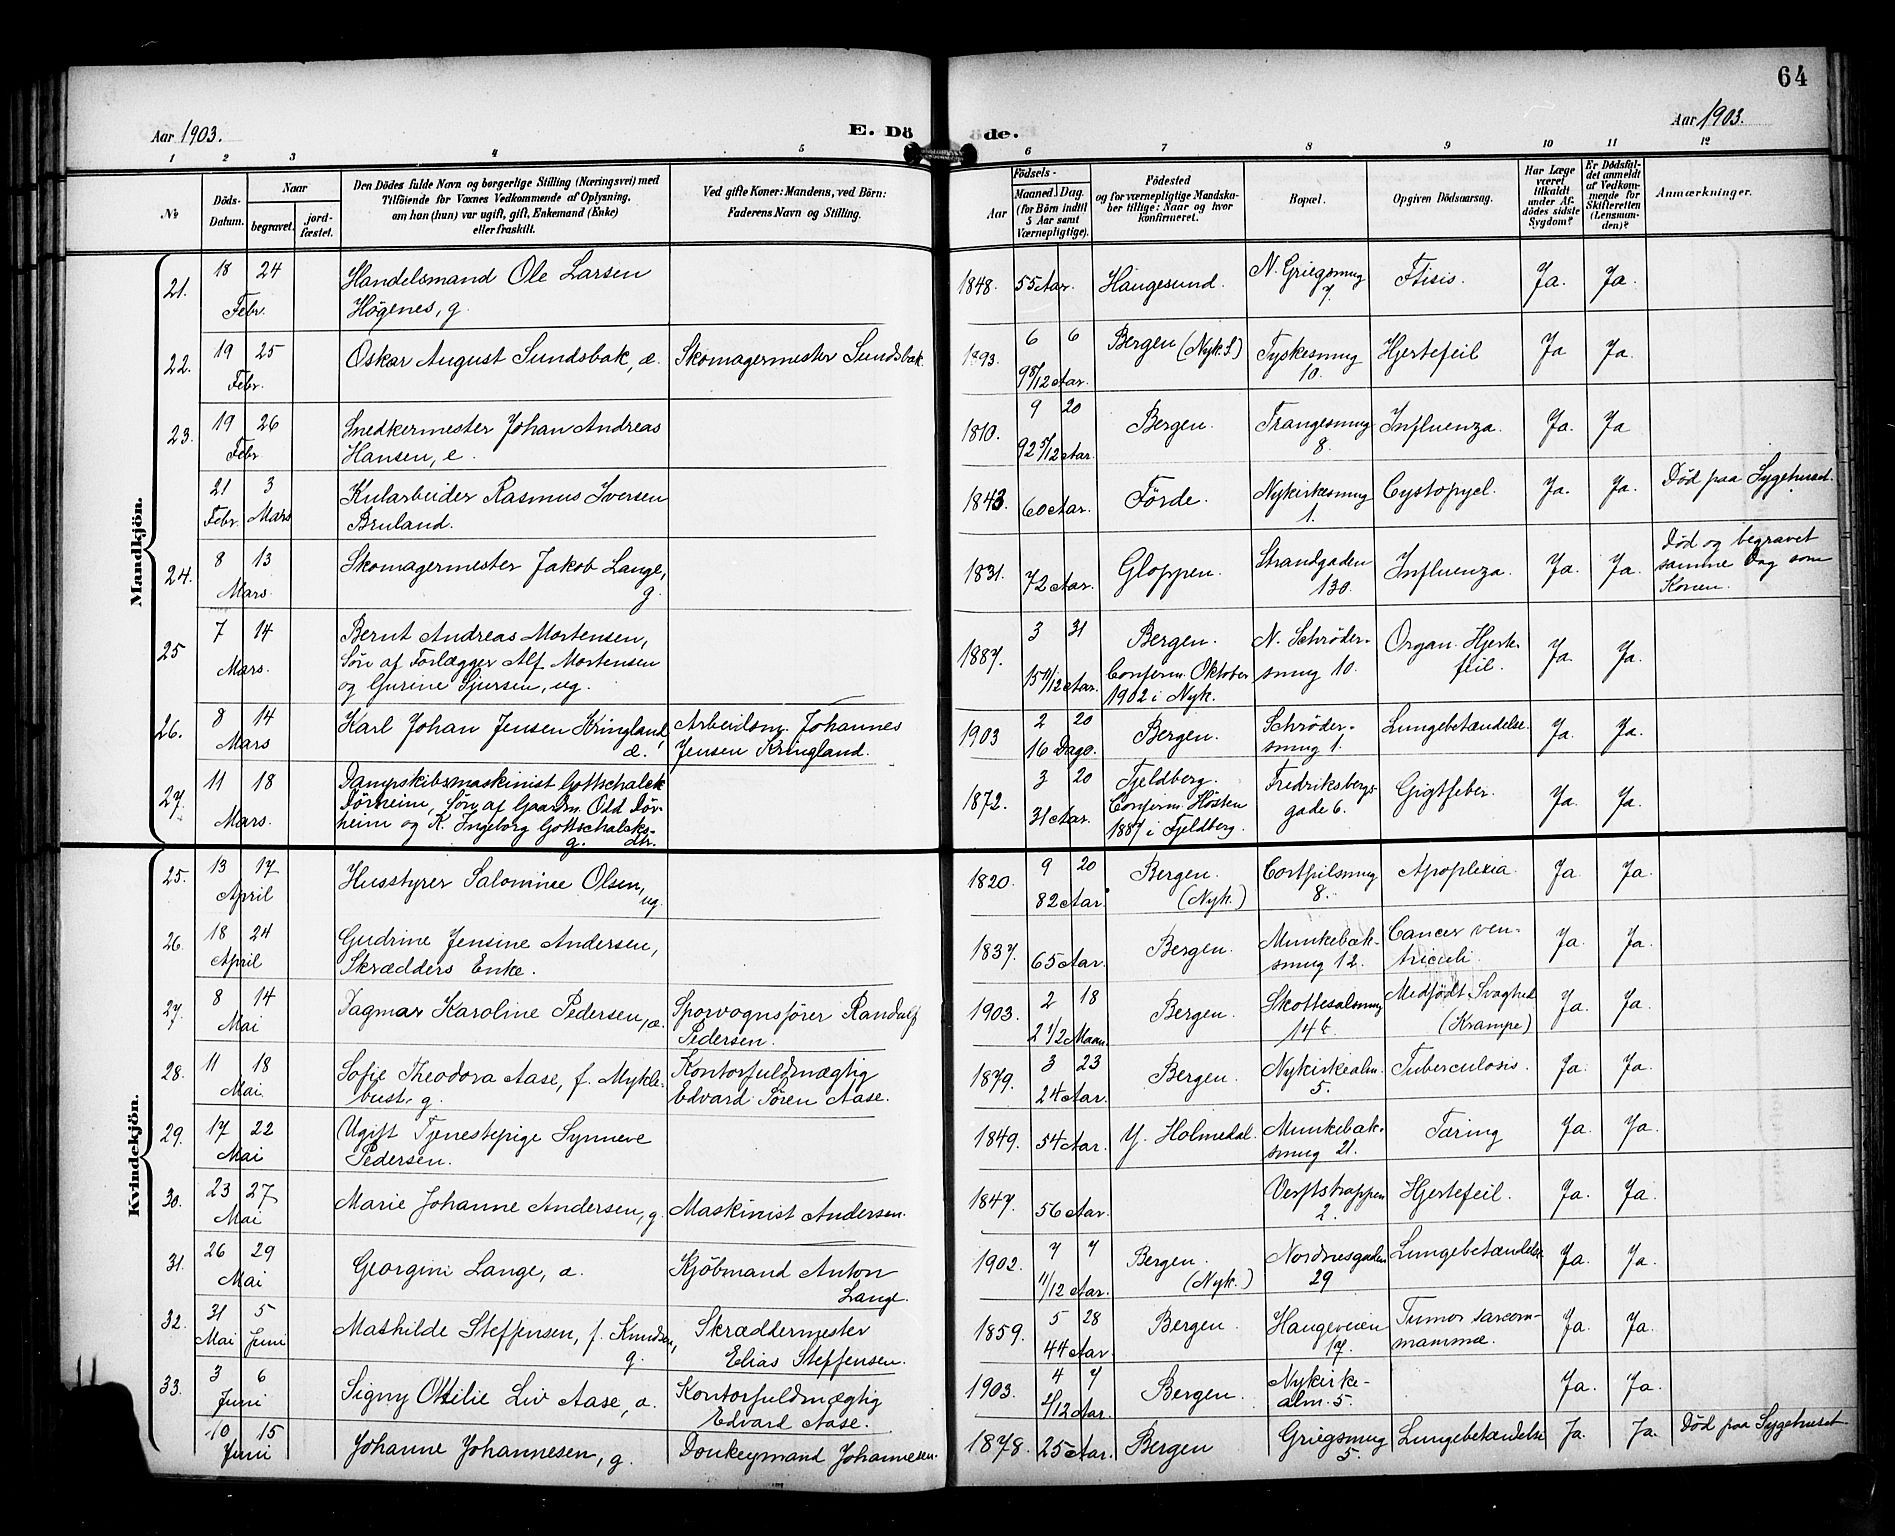 64
Aar 1903.
E. Dö
de.
Aar 1903.
1 2 3 4 5 6 7 8 9 10 11 12
No
Döds-
Datum.
Naar
begravet.
jord-
fæstet.
Den Dödes fulde Navn og borgerlige Stilling (Næringsvei) med
Tilföiende for Voxnes Vedkommende af Oplysning,
om han (hun) var ugift, gift, Enkemand (Enke)
eller fraskilt.
Ved gifte Koner: Mandens, ved Börn:
Faderens Navn og Stilling.
Födsels-
Aar
Maaned. Dag.
(for Börn indtil
5 Aar samt
Værnepligtige).
Födested
og for værnepligtige Mandska-
ber tillige: Naar og hvor
konfirmeret.
Bopæl.
Opgiven Dödsaarsag.
Har Læge
været
tilkaldt
under Af-
dödes sidste
Sygdom?
Er Dödsfal-
det anmeldt
af Vedkom-
mende for
Skifteretten
(Lensman-
den)?
Anmærkninger.
Mandkjön.
21. 18 24 Febr. Handelsmand Ole Larsen
Högenes, g.
1848. 55 Aar. Haugesund. N. Griegsmug
7. Ftisis. Ja. Ja.
22. 19 25 Febr. Oskar August Sundsbak, æ. Skomagermester Sundsbak
1893. 6 6
9 8/12 Aar. Bergen (Nyk. S.) Tyskesmug
10. Hjertefeil Ja Ja.
23. 19 26 Febr Snedkermester Johan Andreas
Hansen, e.
1810. 9 20
92 5/12 Aar. Bergen. Trangesmug
8. Influenza. Ja. Ja
21 3
Febr. Mars Kularbeider Rasmus Iversen
Bruland.
1843. 60 Aar. Förde. Nykirkesmug
1. Cystopyel. Ja. Ja. Död paa Sygehuset.
24. 8 13 Mars. Skomagermester Jakob Lange,
g.
1831. 72 Aar. Gloppen. Strandgaden
130. Influenza. Ja. Ja. Död og begravet
samme Dag som
Konen.
25 7 14 Mars. Bernt Andreas Mortensen,
Sön af Forlægger Alf Mortensen
og Gurine Sjursen, ug.
1887. 3 31
15 11/12 Aar. Bergen.
Conferm. Oktober
1902 i Nyk. N. Schröder-
smug 10. Organ. Hjerte-
feil. Ja. Ja.
26. 8 14 Mars Karl Johan Jensen Kringland,
æ. Arbeidsm. Johannes
Jensen Kringland.
1903 2 20
16 Dage. Bergen. Schröder-
smug 1. Lungebetændelse. Ja. Ja.
27. 11 18 Mars. Dampskibsmaskinist Gottschalck
Dörheim, Sön af Gaardm. Old Dör-
heim og K. Ingeborg Gottschalcks-
g. dtr.
1872. 3 20
31 Aar. Fjeldberg.
Conferm. Hösten
1887 i Fjeldberg. Fredriksbergs-
gade 6. Gigtfeber. Ja. Ja.
Kvindekjön.
25. 13 17 April Husstyrer Salominee Olsen,
ug.
1820. 9 20
82 Aar. Bergen.
(Nyk.) Cortpilsmug
8. Apoplexia. Ja. Ja.
26. 18 24 April Gudrine Jensine Andersen,
Skrædders Enke.
1837. 65 Aar. Bergen. Munkebæk-
smug 12. Cancer ven-
triculi. Ja. Ja.
27. 8 14 Mai Dagmar Karoline Pedersen, æ. Sporvognsfører Randulf
Pedersen.
1903. 2 18
2 1/2 Maan. Bergen. Skottesalsmug
14 b. Medfödt Svaghed
(Krampe) Ja. Ja.
28. 11 18 Mai. Sofie Theodora Aase, f. Mykle-
bust, g. Kontorfuldmægtig
Edvard Sören Aase.
1879. 3 23
24 Aar. Bergen. Nykirkealm.
5. Tuberculosis. Ja. Ja.
29. 17 22 Mai Ugift Tjenestepige Synneve
Pedersen.
1849. 54 Aar. Y. Holmedal. Munkebæk-
smug 21. Tæring Ja. Ja.
30. 23 27 Mai Marie Johanne Andersen, g. Maskinist Andersen.
1847. 56 Aar. Verftstrappen
2. Hjertefeil. Ja. Ja.
31. 26 29 Mai Georgine Lange, æ. Kjöbmand Anton
Lange.
1902. 7 7
11/12 Aar. Bergen.
(Nyk.) Nordnesgaden
29 Lungebetændelse Ja. Ja.
32. 31 5
Mai Juni Mathilde Steffensen, f. Knudsen,
g. Skræddermester
Elias Steffensen.
1859. 5 28
44 Aar. Bergen. Haugeveien
17. Tumor sarcom-
mammæ. Ja. Ja.
33. 3 6 Juni Signy Ottilie Liv Aase, æ. Kontorfuldmægtig
Edvard Aase.
1903. 4 7
2/12 Aar. Bergen. Nykirke-
alm. 5. Ja. Ja.
10 15 Juni Johanne Johannesen, g. Donkeymand Johannesen.
1878. 25 Aar. Bergen Griegsmug
5. Lungebetændelse Ja. Ja. Död paa Sygehuset